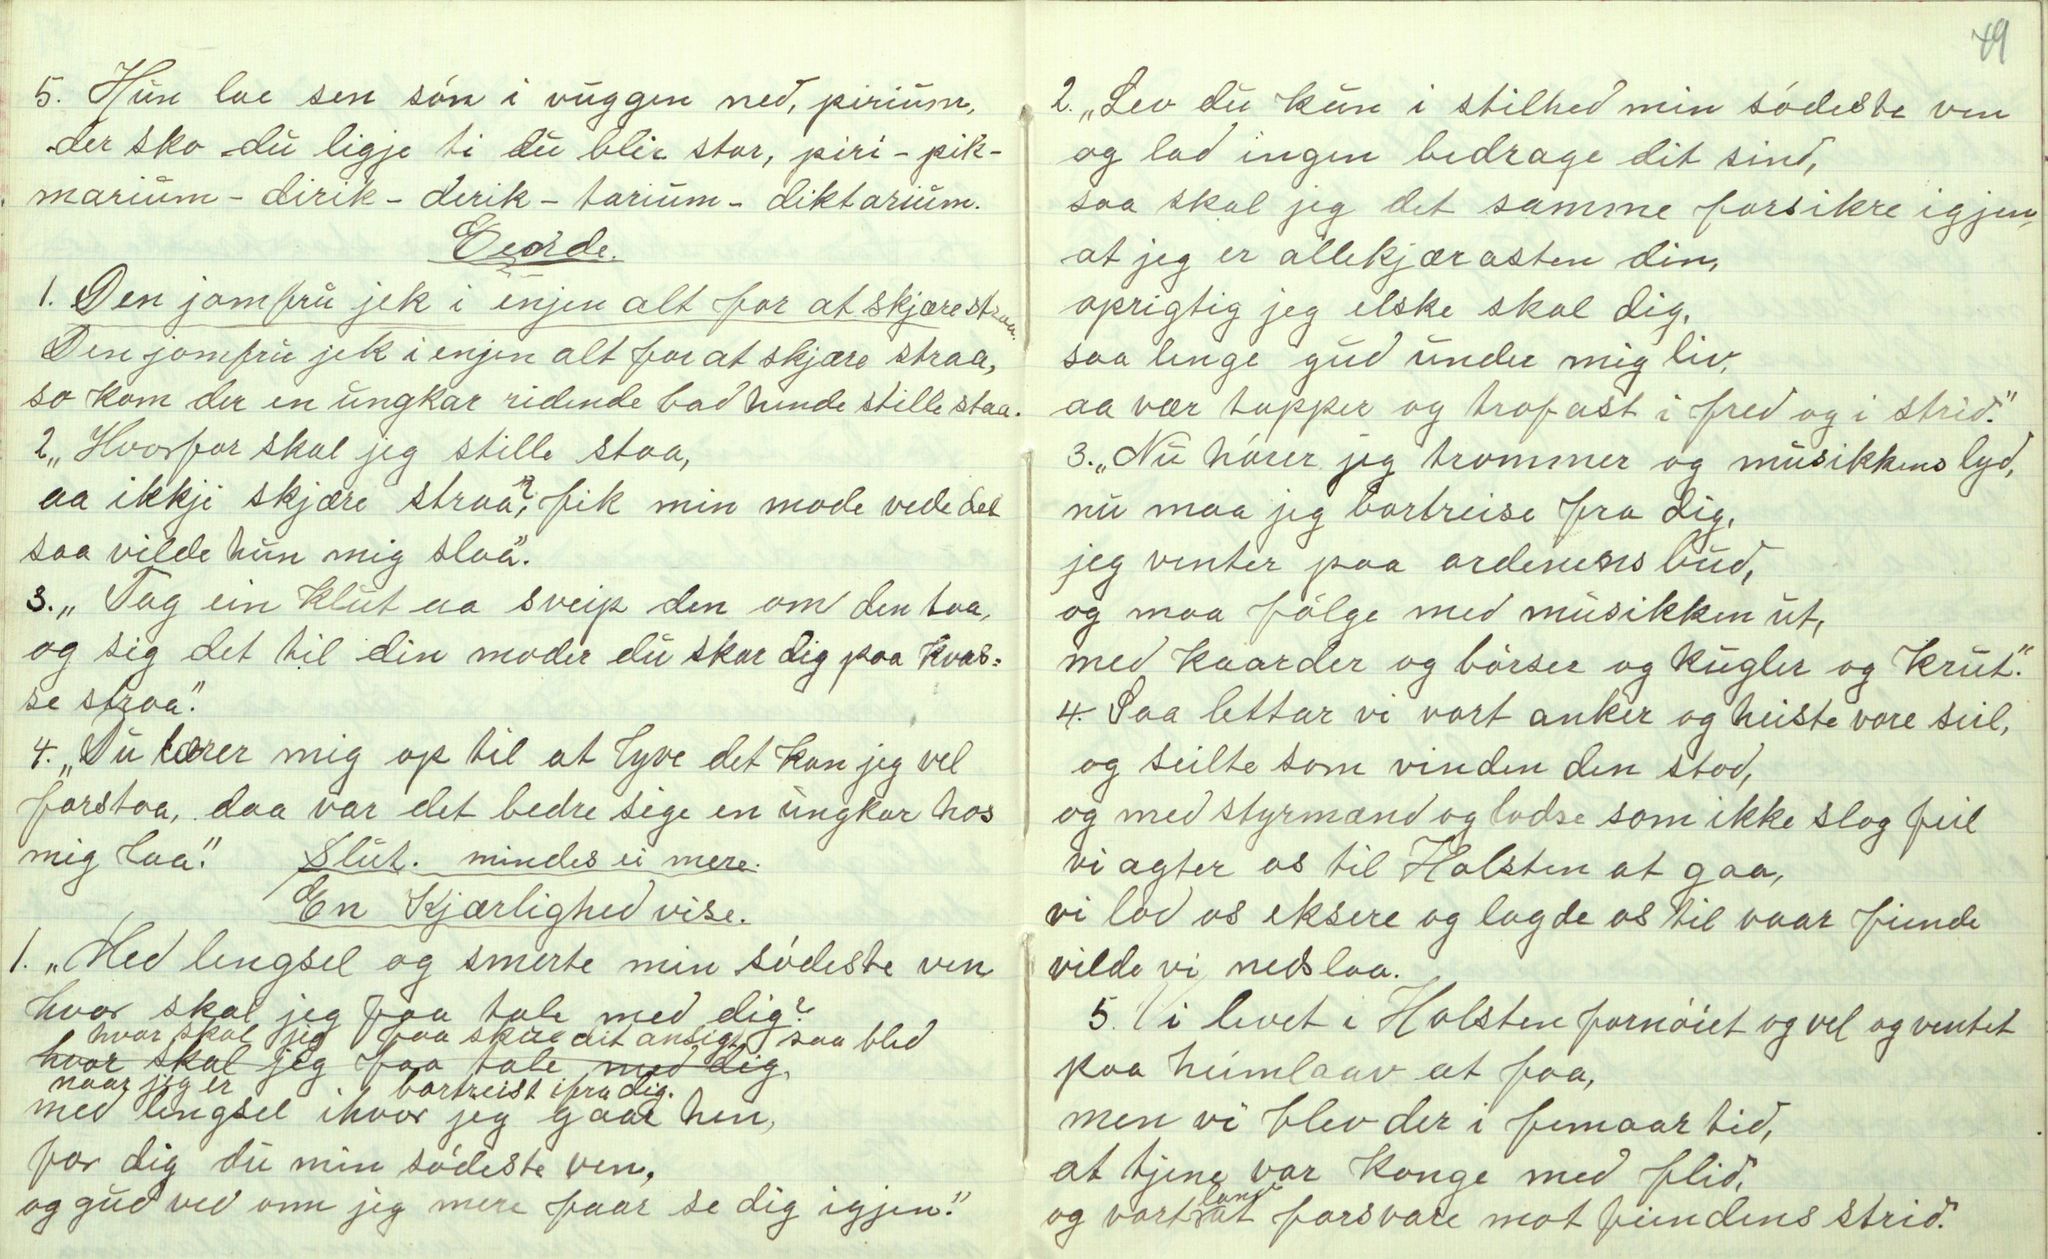 5. Hun lae sen són i vuggen ned, pirium,
der sko du ligje ti du blir stor, piri-pik-
marium-dirik-derik-tarium-diktarium.
1. Den jomfru jek i enjen alt for at skjære straa.
Den jomfru jek i enjen alt for at skjære straa,
so kom der en ungkar ridende bad hende stille staa.
2. „Hvorfor skal jeg stille staa,
aa ikkji skjære straa"? fik min mode vede det
saa vilde hun mig slaa".
3. „Tag ein klut aa sveip den om den taa,
og sig det til din moder du skar dig paa kvas=
se straa".
4. „Du lærer mig op til at lyve det kan jeg vel
forstaa, daa var det bedre sige en ungkar hos
mig laa". Slut. mindes ei mere.
En Kjærlighed vise.
1. „Med lengsel og smerte min sódeste ven
hvor skal jeg faa tale med dig?
hvor skal jeg faa skue dit ansigt saa bled
hvor skal jeg faa tale med dig,
naar jeg er bortreist ifra dig.
med lengsel ihvor jeg gaar hen,
for dig du min sódeste ven,
og gud ved om jeg mere faar se dig igjen."
49
2. „Lev du kun i stilhed min sódeste ven
og lad ingen bedrage dit sind,
saa skal jeg det samme forsikre igjen,
at jeg er allekjærasten din,
oprigtig jeg elske skal dig,
saa lenge gud under mig liv,
aa vær tapper og trofast i fred og i strid."
3. „Nu hórer jeg trommer og musikkens lyd,
nu maa jeg bortreise fra dig,
jeg venter paa ordenens bud,
og maa fólge med musikken ut,
med kaarder og bórser og kugler og krut."
4. Saa lettar vi vort anker og heiste vore seil,
og seilte som vinden den stod,
og med styrmand og lodse som ikke slog feil
vi agter os til Holsten at gaa,
vi lod os eksere og lagde os til vaar fiende
vilde vi nedslaa.
5. Vi levet i Holsten fornóiet og vel og ventet
paa heimlaav at faa,
men vi blev der i femaar tid,
at tjene vor konge med flid,
land
og vort ut forsvare mot fiendens strid."